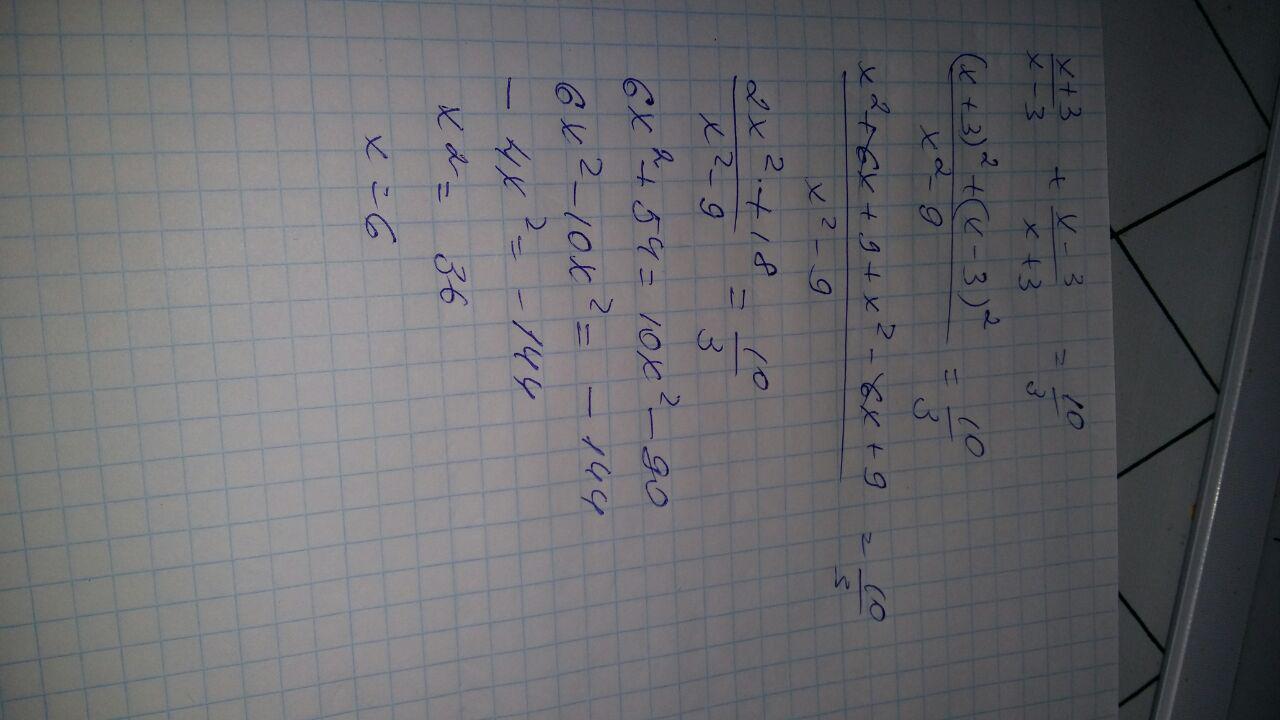 x+3/x-3 + x-3/x+3 = 10/3
(x+3)²+(x-3)²/x²-9 = 10/3
x²+6x+9+x²-6x+9/x²-9 = 10/3
2x²+18/x²-9 = 10/3
6x²+54=10x²-90
6x²-10x²=-144
-4x²=-144
x²=36
x=6